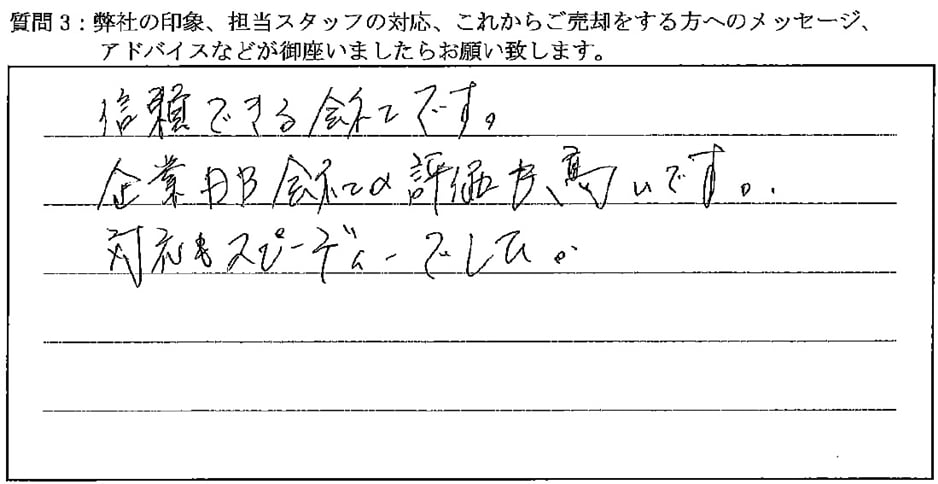 質問3：弊社の印象、担当スタッフの対応、これからご売却をする方へのメッセージ、
アドバイスなどが御座いましたらお願い致します。
信頼できる会社です。
企業 会社の評価が高いです。
対応もスピーディーでした。